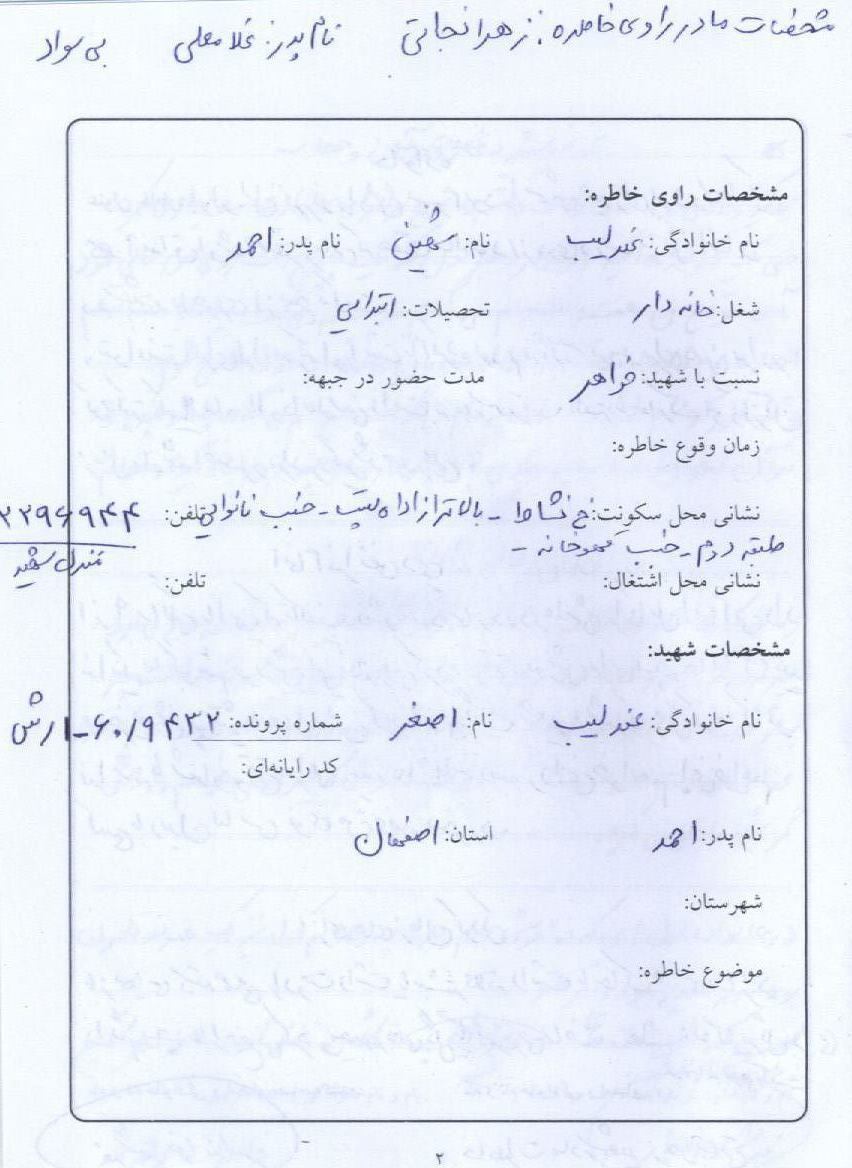 مشخصات مادر راوی خاطره: زهرا نجاتی نام پدر: غلامعلی بی سواد
مشخصات راوی خاطره:
نام خانوادگی: عندلیب نام: شهین نام پدر: احمد
شغل: خانه دار تحصیلات: ابتدایی
نسبت با شهید: خواهر مدت حضور در جبهه:
زمان وقوع خاطره:
نشانی محل سکونت: خ نشاط - بالاتر از اداره پست - جنب نانوایی تلفن: ۲۲۹۶۹۴۴
طبقه دوم - جنب قهوه خانه - منزل شهید
نشانی محل اشتغال: تلفن:
مشخصات شهید:
نام خانوادگی: عندلیب نام: اصغر شماره پرونده: ۶۰/۹۴۳۲-۱ رش
کد رایانه‌ای:
نام پدر: احمد استان: اصفهان
شهرستان:
موضوع خاطره:
۲